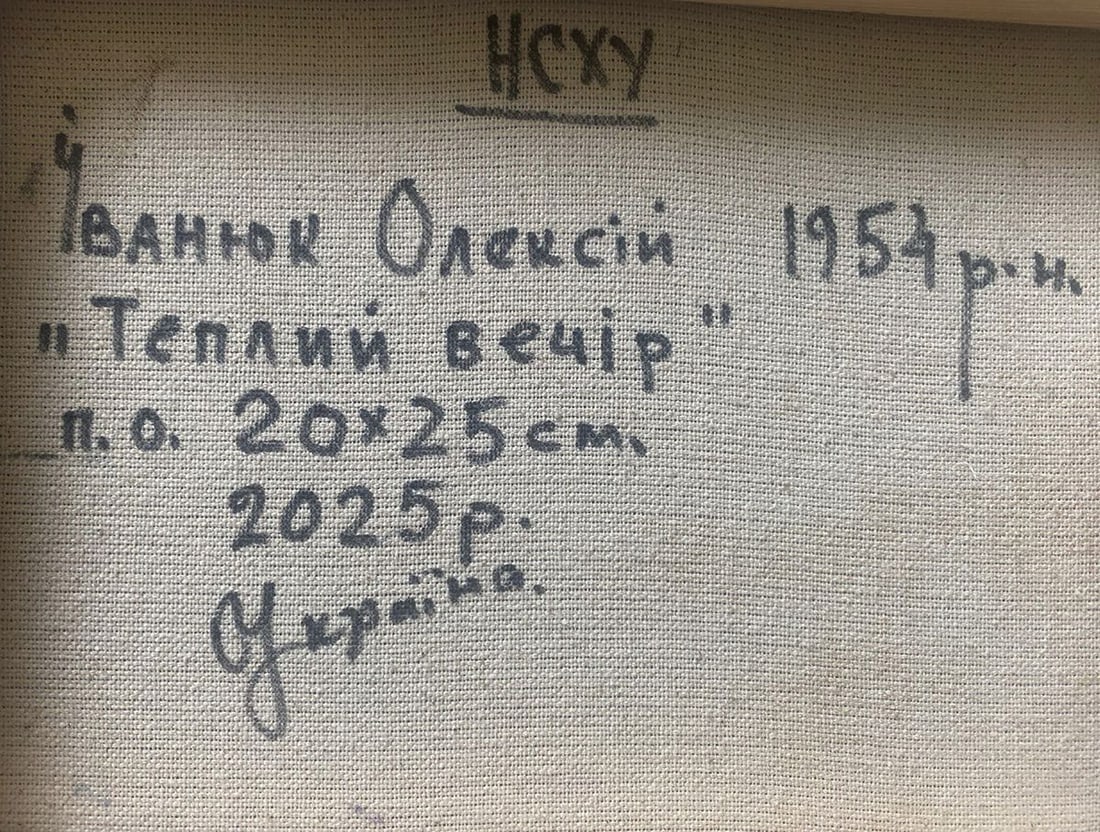 НСХУ
Іванюк Олексій 1954 р.н.
"Теплий вечір"
п.о. 20x25 см.
2025 р.
Україна.